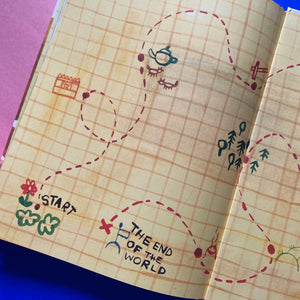 START
THE END
OF THE
WORLD